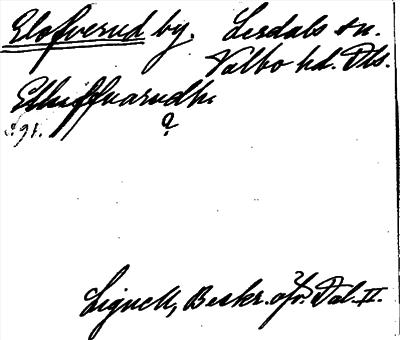 Elofverud by. Lerdals sn.
Valbo hd. Dls.
Elluffuarudh.
?
Lignell, Beskr. öfv. Dal. II.